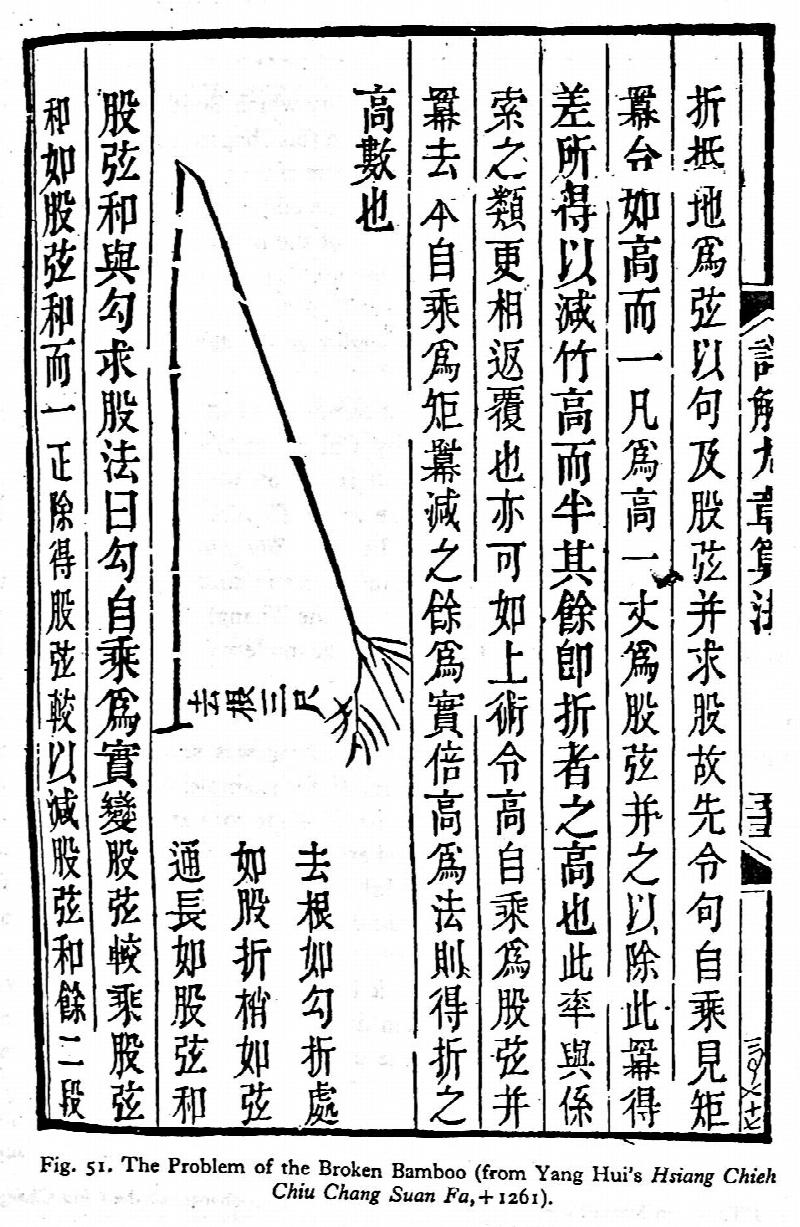 詳解九章算法
折抵地爲弦以句及股弦并求股故先令句自乘見矩
羃台如高而一凡爲高一丈爲股弦并之以除此羃得
差所得以減竹高而半其餘卽折者之高也此率與係
索之類更相返覆也亦可如上術令高自乘爲股弦并
羃去本自乘爲矩羃減之餘爲實倍高爲法則得折之
高數也
去根三尺
去根如勾折處
如股折梢如弦
通長如股弦和
股弦和與勾求股法曰勾自乘爲實變股弦較乘股弦
和如股弦和而一正除得股弦較以減股弦和餘二段
Fig. 51. The Problem of the Broken Bamboo (from Yang Hui's Hsiang Chieh
Chiu Chang Suan Fa, +1261).